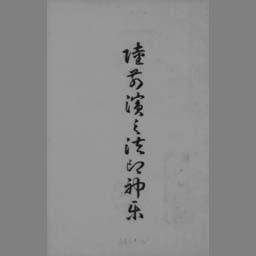 陸前濱之法印神樂